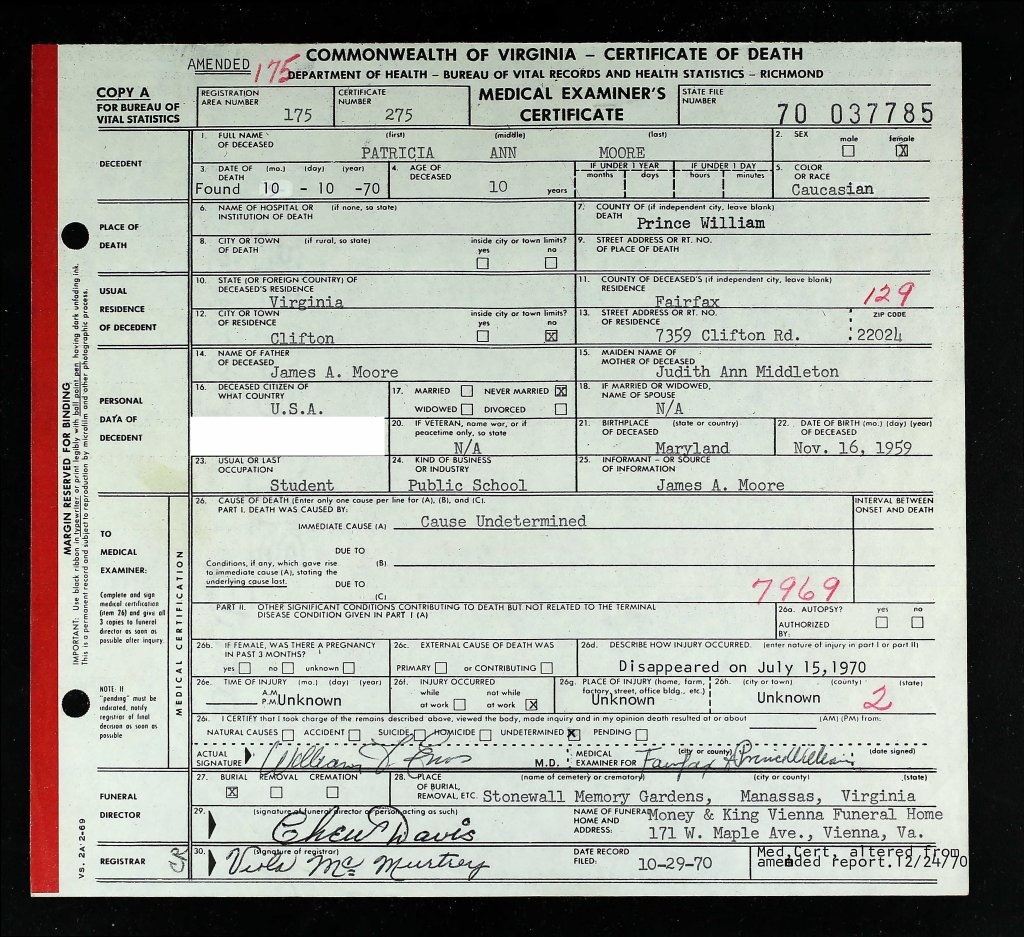 AMENDED 175 COMMONWEALTH OF VIRGINIA – CERTIFICATE OF DEATH
DEPARTMENT OF HEALTH – BUREAU OF VITAL RECORDS AND HEALTH STATISTICS – RICHMOND
COPY A
FOR BUREAU OF
VITAL STATISTICS
REGISTRATION
AREA NUMBER 175
CERTIFICATE
NUMBER 275
MEDICAL EXAMINER'S
CERTIFICATE
STATE FILE
NUMBER 70 037785
DECEDENT
1. FULL NAME (first) (middle) (last)
OF DECEASED PATRICIA ANN MOORE
2. SEX male female
X
3. DATE OF (mo.) (day) (year)
DEATH
Found 10 - 10 -70
4. AGE OF
DECEASED 10 years
IF UNDER 1 YEAR IF UNDER 1 DAY
months days hours minutes
5. COLOR
OR RACE
Caucasian
PLACE OF
DEATH
6. NAME OF HOSPITAL OR (if none, so state)
INSTITUTION OF DEATH
7. COUNTY OF (if independent city, leave blank)
DEATH Prince William
8. CITY OR TOWN (if rural, so state) inside city or town limits?
OF DEATH yes no
9. STREET ADDRESS OR RT. NO.
OF PLACE OF DEATH
USUAL
RESIDENCE
OF DECEDENT
10. STATE (OR FOREIGN COUNTRY) OF
DECEASED'S RESIDENCE
Virginia
11. COUNTY OF DECEASED'S (if independent city, leave blank)
RESIDENCE
Fairfax 129
12. CITY OR TOWN inside city or town limits?
OF RESIDENCE yes no
Clifton X
13. STREET ADDRESS OR RT. NO. ZIP CODE
OF RESIDENCE
7359 Clifton Rd. 22024
PERSONAL
DATA OF
DECEDENT
14. NAME OF FATHER
OF DECEASED
James A. Moore
15. MAIDEN NAME OF
MOTHER OF DECEASED
Judith Ann Middleton
16. DECEASED CITIZEN OF
WHAT COUNTRY
U.S.A.
17. MARRIED NEVER MARRIED X
WIDOWED DIVORCED
18. IF MARRIED OR WIDOWED,
NAME OF SPOUSE
N/A
20. IF VETERAN, name war, or if
peacetime only, so state
N/A
21. BIRTHPLACE (state or country)
OF DECEASED
Maryland
22. DATE OF BIRTH (mo.) (day) (year)
OF DECEASED
Nov. 16, 1959
23. USUAL OR LAST
OCCUPATION
Student
24. KIND OF BUSINESS
OR INDUSTRY
Public School
25. INFORMANT - OR SOURCE
OF INFORMATION
James A. Moore
MARGIN RESERVED FOR BINDING
IMPORTANT: Use black ribbon in typewriter or print legibly with ball point pen having dark unfading ink.
This is a permanent record and subject to reproduction by microfilm and other photographic process.
TO
MEDICAL
EXAMINER:
Complete and sign
medical certification
(item 26) and give all
3 copies to funeral
director as soon as
possible after inquiry.
NOTE: If
"pending" must be
indicated, notify
registrar of final
decision as soon as
possible
MEDICAL CERTIFICATION
26. CAUSE OF DEATH (Enter only one cause per line for (A), (B), and (C).
PART I. DEATH WAS CAUSED BY:
INTERVAL BETWEEN
ONSET AND DEATH
IMMEDIATE CAUSE (A) Cause Undetermined
DUE TO
Conditions, if any, which gave rise
to immediate cause (A), stating the
underlying cause last.
(B)
DUE TO
(C)
7969
PART II. OTHER SIGNIFICANT CONDITIONS CONTRIBUTING TO DEATH BUT NOT RELATED TO THE TERMINAL
DISEASE CONDITION GIVEN IN PART I (A)
26a. AUTOPSY? yes no
AUTHORIZED
BY:
26b. IF FEMALE, WAS THERE A PREGNANCY
IN PAST 3 MONTHS?
yes no unknown
26c. EXTERNAL CAUSE OF DEATH WAS
PRIMARY or CONTRIBUTING
26d. DESCRIBE HOW INJURY OCCURRED. (enter nature of injury in part I or part II)
Disappeared on July 15,1970
26e. TIME OF INJURY (mo.) (day) (year)
A.M.
P.M. Unknown
26f. INJURY OCCURRED
while not while
at work at work X
26g. PLACE OF INJURY (home, farm,
factory, street, office bldg., etc.)
Unknown
26h. (city or town) (county) (state)
Unknown 2
26i. I CERTIFY that I took charge of the remains described above, viewed the body, made inquiry and in my opinion death resulted at or about (AM) (PM) from:
NATURAL CAUSES ACCIDENT SUICIDE HOMICIDE UNDETERMINED X PENDING
ACTUAL
SIGNATURE William Enos M.D.
MEDICAL (city or county) (date signed)
EXAMINER FOR Fairfax & Prince William
FUNERAL
DIRECTOR
27. BURIAL REMOVAL CREMATION
X
28. PLACE (name of cemetery or crematory) (city or county) (state)
OF BURIAL,
REMOVAL, ETC. Stonewall Memory Gardens, Manassas, Virginia
29. (signature of funeral director or person acting as such)
Davis
NAME OF FUNERAL Money & King Vienna Funeral Home
HOME AND
ADDRESS: 171 W. Maple Ave., Vienna, Va.
REGISTRAR
CR
30. (signature of registrar)
Viola Mc Murtrey
DATE RECORD
FILED: 10-29-70
Med.Cert. altered from
amended report.12/24/70
VS. 2A 2-69